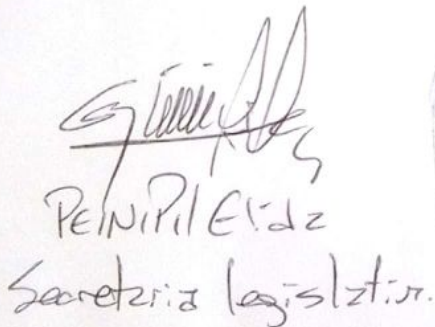 PEINIPIl Elida
Secretaria legislativa.